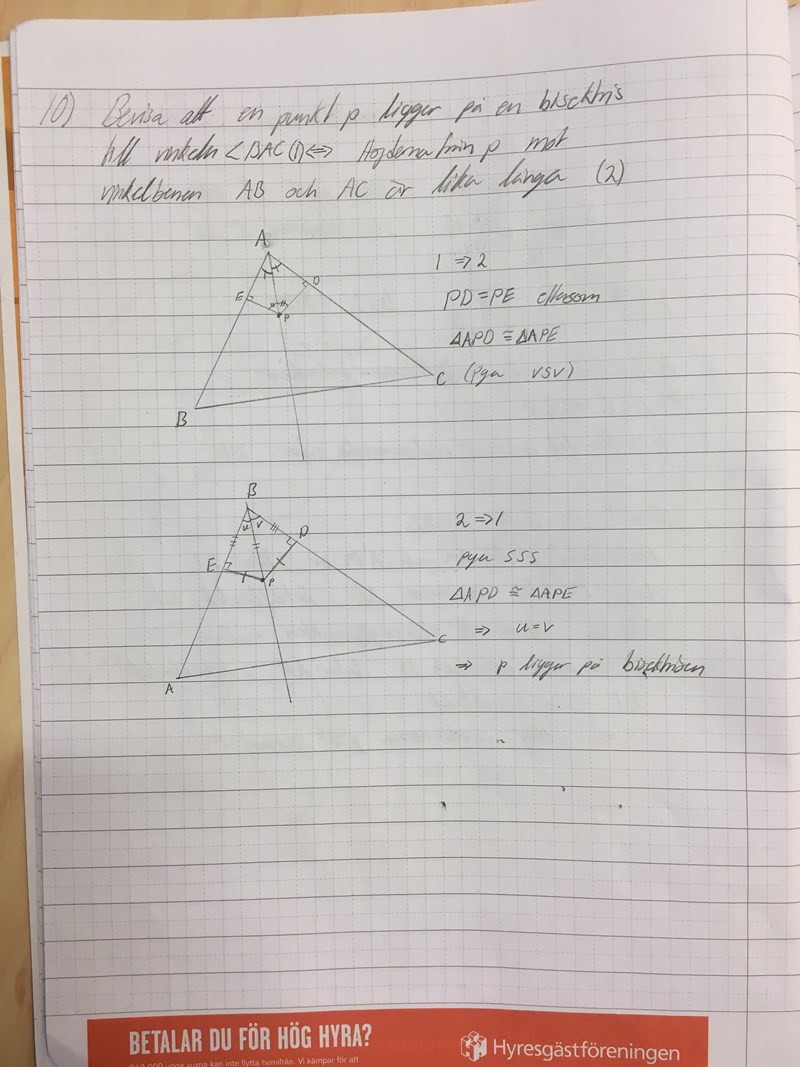 10) Bevisa att en punkt p ligger på en bisektris
till vinkeln ∠BAC (1) ⇔ Höjderna från p mot
vinkelbenen AB och AC är lika långa (2)
A
1 ⇒ 2
E
D
PD = PE eftersom
P
△APD ≅ △APE
C
(Pga VSV)
B
B
2 ⇒ 1
u v
D
E
pga SSS
P
△APD ≅ △APE
⇒ u = v
C
⇒ p ligger på bisektrisen
A
BETALAR DU FÖR HÖG HYRA?
Hyresgästföreningen
unga vuxna kan inte flytta hemifrån. Vi kämpar för att